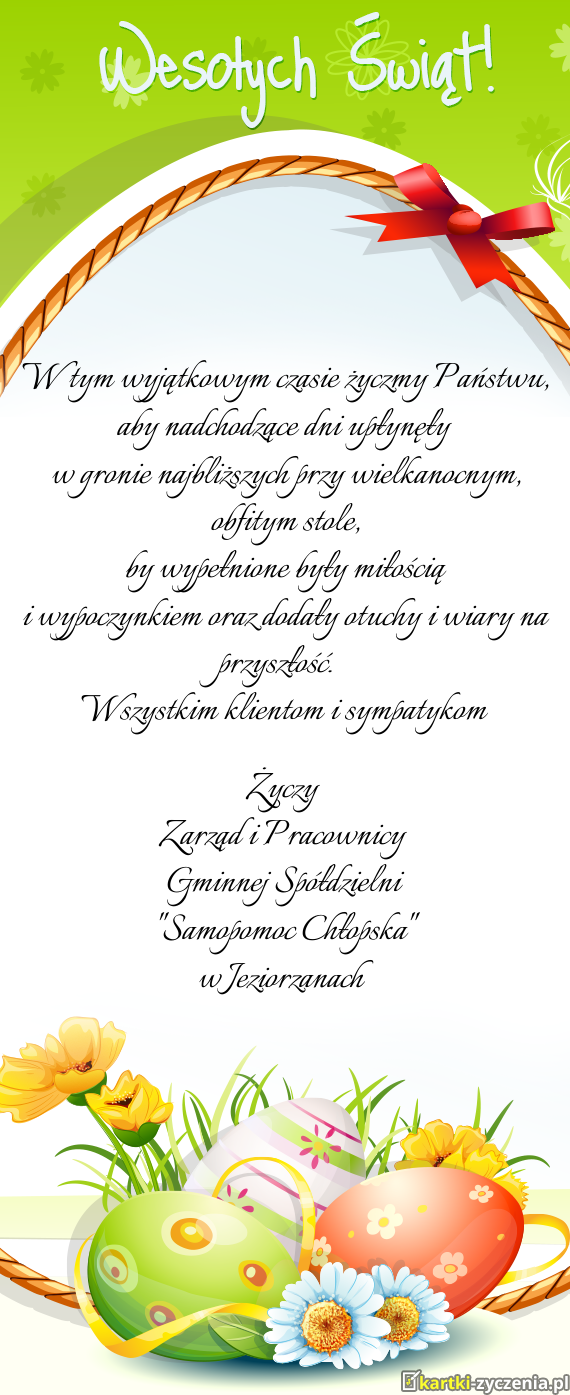 Wesołych Świąt!
W tym wyjątkowym czasie życzmy Państwu,
aby nadchodzące dni upłynęły
w gronie najbliższych przy wielkanocnym,
obfitym stole,
by wypełnione były miłością
i wypoczynkiem oraz dodały otuchy i wiary na
przyszłość.
Wszystkim klientom i sympatykom
Życzy
Zarząd i Pracownicy
Gminnej Spółdzielni
"Samopomoc Chłopska"
w Jeziorzanach
kartki-zyczenia.pl